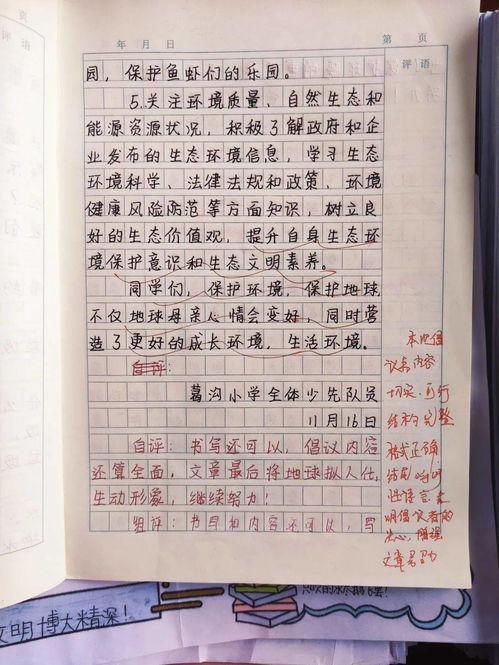 页
年 月 日
第 页
评语
园，保护鱼虾们的乐园。
5.关注环境质量、自然生态和
能源资源状况，积极了解政府和企
业发布的生态环境信息，学习生态
环境科学、法律法规和政策、环境
健康风险防范等方面知识，树立良
好的生态价值观，提升自身生态环
境保护意识和生态文明素养。
同学们，保护环境，保护地球，
不仅地球母亲心情会变好，同时营
造了更好的成长环境，生活环境。
自评：
葛沟小学全体少先队员
11月16日
自评：书写还可以，倡议内容
还算全面，文章最后将地球拟人化，
生动形象，继续努力！
组评：书写和内容还可以，写
本次倡
议书内容
切实可行
结构完整
格式正确
结尾
性语言表
明倡议者的
决心，增强
文章
文明博大精深！